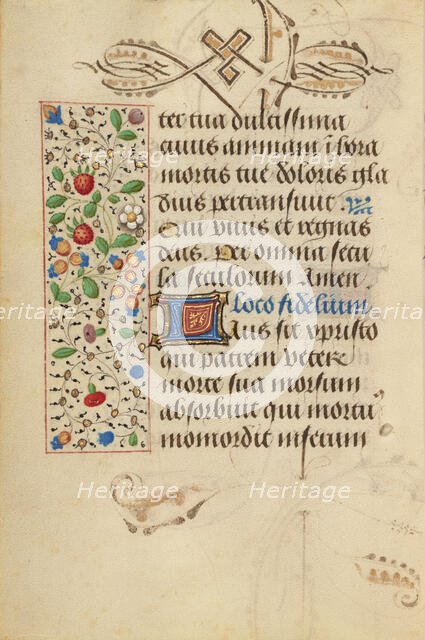 ter tua dulcissima
cuius animam i hora
mortis tue doloris gla
dius pertransiuit.
Qui viuis et regnas
deus. Per omnia secu
la seculorum Amen
loco fidelium
aus sit xpristo
qui
morte sua morsum
absorbuit qui
momordit
Heritage Heritage Heritage
Heritage Heritage Heritage
Heritage Heritage